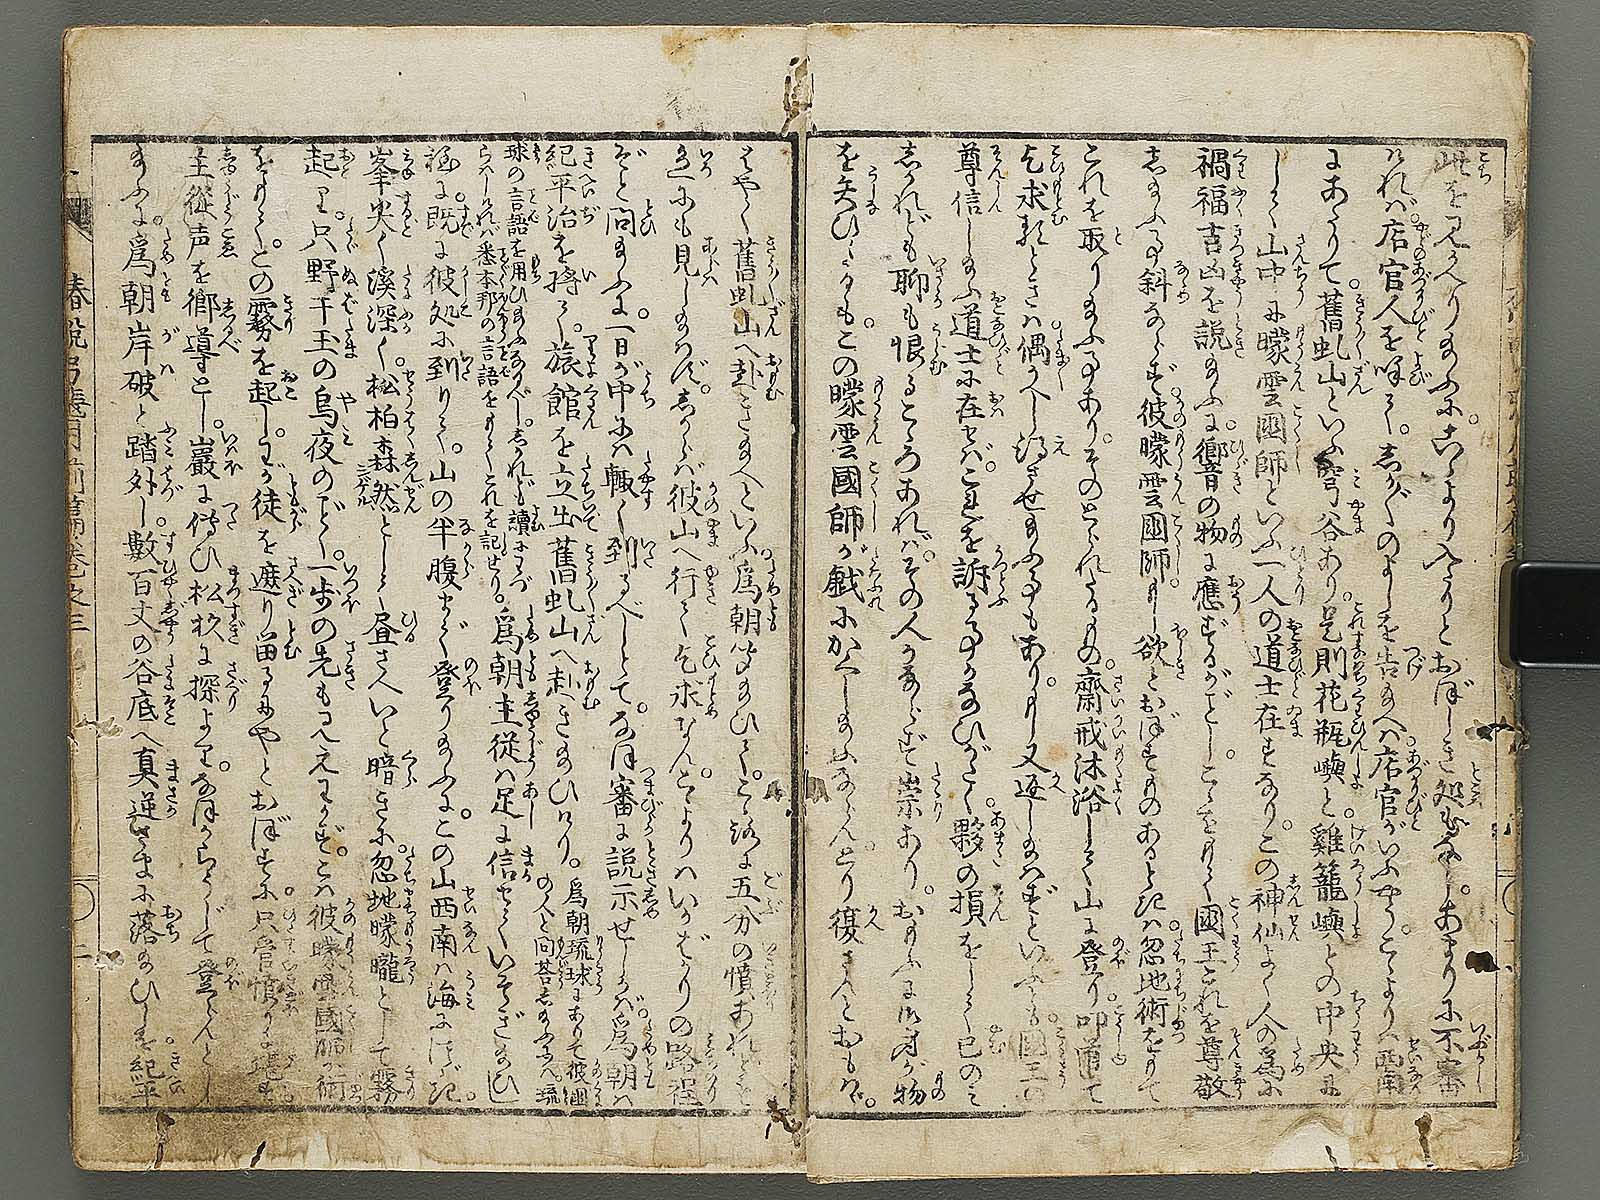 此を見かへり給ふに。こゝより入るかとおぼしき処もなし。あまりに不審
ければ。店官人を呼て。しか〴〵のよしを告給へば。店官がいふやう。こゝより西南
にあたりて。舊虬山といふ穹谷あり。是則花瓶嶼と。雞籠嶼との中央に
して。山中に曚雲國師といふ一人の道士在すなり。この神仙よく人の為に
禍福吉凶を説給ふに。響の物に應ずるがごとし。こゝをもて國王これを尊敬
し給ふ事斜ならず。彼曚雲國師もし欲とおぼすものあるときは。忽地術をもて
これを取り給ふ事あり。そのとられたるもの。齋戒沐浴して山に登り。叩頭して
乞求るときは。偶かへし得させ給ふ事もあり。もし又返し給はずといふとも。國王の
尊信し給ふ道士に在せば。これを訴る事かなひがたく。夥の損をして已のみ
しかれども聊も恨るこゝろあれば。その人かならず祟あり。おもふに御身が物
を失ひ給へるも。この曚雲國師が戯にかくし給ふならん。とり復さんとおもはゞ。
はやく舊虬山へ赴き給へといふ。爲朝聞給ひて。こゝろに五分の憤あれど。色
にも見し給はず。しからば彼山へ行て乞求なん。こゝよりはいかばかりの路程
ぞと問給ふに。一日が中には輙く到るべしとて。なほ審に説示せしかば。爲朝は
紀平治を將て。旅館を立出舊虬山へ赴き給ひけり。爲朝琉球にありて彼國の人と問荅し給ふには。琉
球の言語を用ひ給ふなるべし。しかれども讀にくければ。悉本邦の言語をもてこれを記せり。爲朝主從は足に信していそぎ給ひ
程に。既に彼処に到りて。山の半腹まで登り給ふに。この山西南は海にほどちかく。
峯尖く溪深く。松柏森然として昼さへいと暗きに。忽地曚曨として霧
起り。只野干玉の烏夜のごとく。一歩の先も見えわかず。こは彼曚雲國師が術
をもて。この霧を起し。わが徒を遮り留るにやとおぼすに。只管憤りに堪ず。
主從声を郷導とし。巌に傳ひ松杉に探よりて。なほからうじて登らんとし
給ふに。爲朝岸破と踏外し。數百丈の谷底へ真逆さまに落給ひしを。紀平
春説弓張月前篇巻之三